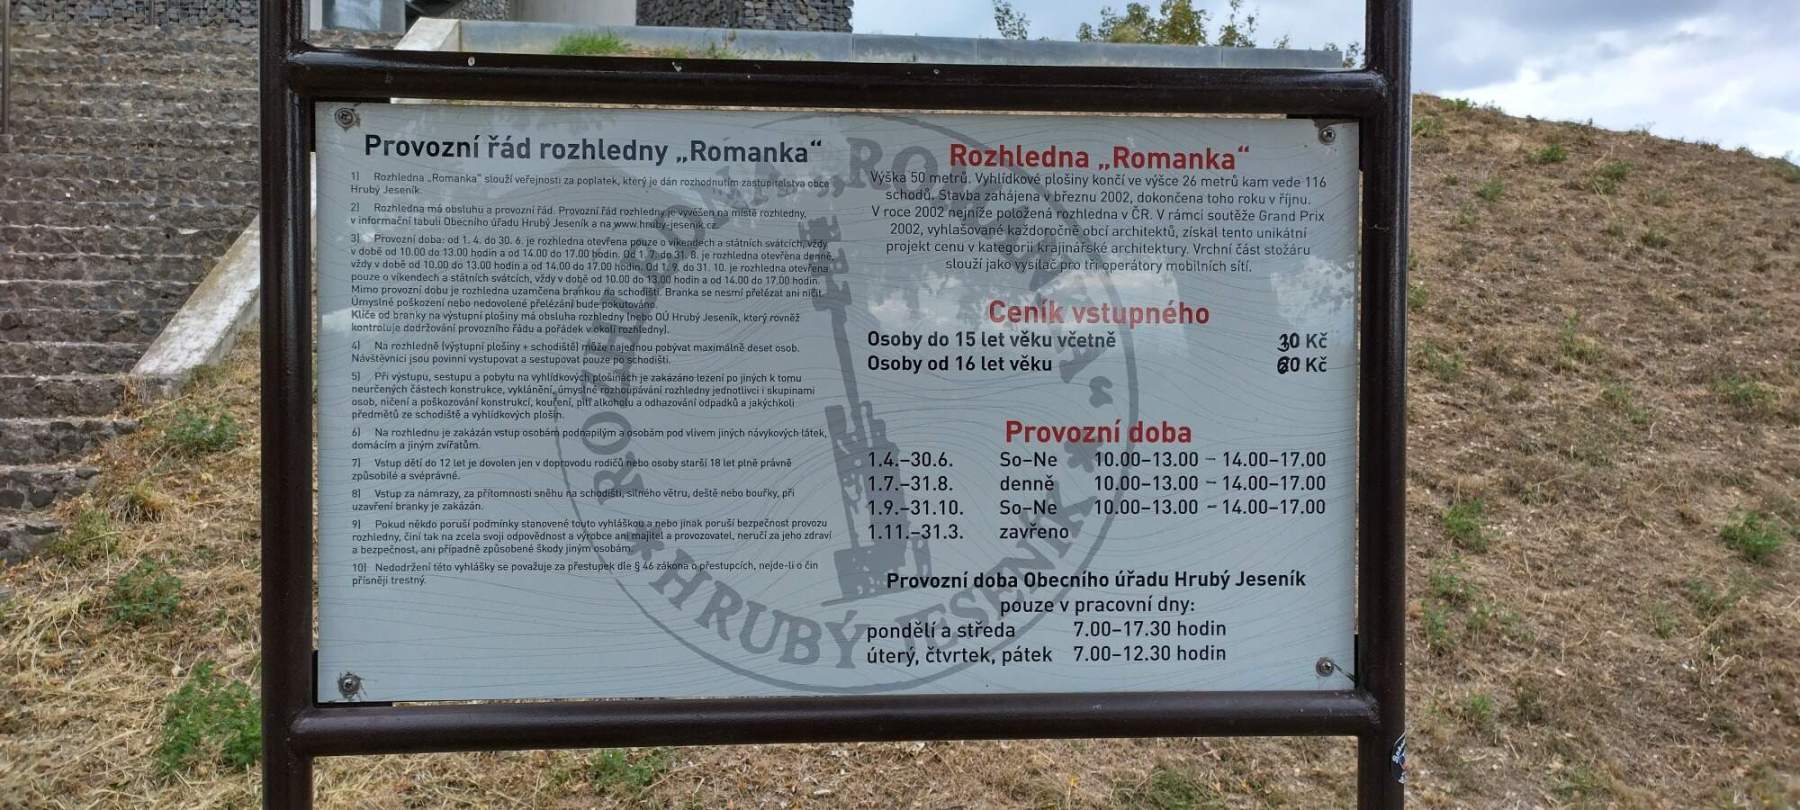 Provozní řád rozhledny „Romanka“
1) Rozhledna „Romanka“ slouží veřejnosti za poplatek, který je dán rozhodnutím zastupitelstva obce
Hrubý Jeseník.
2) Rozhledna má obsluhu a provozní řád. Provozní řád rozhledny je vyvěšen na místě rozhledny,
v informační tabuli Obecního úřadu Hrubý Jeseník a na www.hruby-jesenik.cz.
3) Provozní doba: od 1. 4. do 30. 6. je rozhledna otevřena pouze o víkendech a státních svátcích, vždy
v době od 10.00 do 13.00 hodin a od 14.00 do 17.00 hodin. Od 1. 7. do 31. 8. je rozhledna otevřena denně,
vždy v době od 10.00 do 13.00 hodin a od 14.00 do 17.00 hodin. Od 1. 9. do 31. 10. je rozhledna otevřena
pouze o víkendech a státních svátcích, vždy v době od 10.00 do 13.00 hodin a od 14.00 do 17.00 hodin.
Mimo provozní dobu je rozhledna uzamčena brankou na schodišti. Branka se nesmí přelézat ani ničit.
Úmyslné poškození nebo nedovolené přelézání bude pokutováno.
Klíče od branky na výstupní plošiny má obsluha rozhledny (nebo OÚ Hrubý Jeseník, který rovněž
kontroluje dodržování provozního řádu a pořádek v okolí rozhledny).
4) Na rozhledně (výstupní plošiny + schodiště) může najednou pobývat maximálně deset osob.
Návštěvníci jsou povinni vystupovat a sestupovat pouze po schodišti.
5) Při výstupu, sestupu a pobytu na vyhlídkových plošinách je zakázáno lezení po jiných k tomu
neurčených částech konstrukce, vyklánění, úmyslné rozhoupávání rozhledny jednotlivci i skupinami
osob, ničení a poškozování konstrukcí, kouření, pití alkoholu a odhazování odpadků a jakýchkoli
předmětů ze schodiště a vyhlídkových plošin.
6) Na rozhlednu je zakázán vstup osobám podnapilým a osobám pod vlivem jiných návykových látek,
domácím a jiným zvířatům.
7) Vstup dětí do 12 let je dovolen jen v doprovodu rodičů nebo osoby starší 18 let plně právně
způsobilé a svéprávné.
8) Vstup za námrazy, za přítomnosti sněhu na schodišti, silného větru, deště nebo bouřky, při
uzavření branky je zakázán.
9) Pokud někdo poruší podmínky stanovené touto vyhláškou a nebo jinak poruší bezpečnost provozu
rozhledny, činí tak na zcela svoji odpovědnost a výrobce ani majitel a provozovatel, neručí za jeho zdraví
a bezpečnost, ani případně způsobené škody jiným osobám.
10) Nedodržení této vyhlášky se považuje za přestupek dle § 46 zákona o přestupcích, nejde-li o čin
přísněji trestný.
Rozhledna „Romanka“
Výška 50 metrů. Vyhlídkové plošiny končí ve výšce 26 metrů kam vede 116
schodů. Stavba zahájena v březnu 2002, dokončena toho roku v říjnu.
V roce 2002 nejníže položená rozhledna v ČR. V rámci soutěže Grand Prix
2002, vyhlašované každoročně obcí architektů, získal tento unikátní
projekt cenu v kategorii krajinářské architektury. Vrchní část stožáru
slouží jako vysílač pro tři operátory mobilních sítí.
Ceník vstupného
Osoby do 15 let věku včetně 30 Kč
Osoby od 16 let věku 60 Kč
Provozní doba
1.4.–30.6. So–Ne 10.00–13.00 – 14.00–17.00
1.7.–31.8. denně 10.00–13.00 – 14.00–17.00
1.9.–31.10. So–Ne 10.00–13.00 – 14.00–17.00
1.11.–31.3. zavřeno
Provozní doba Obecního úřadu Hrubý Jeseník
pouze v pracovní dny:
pondělí a středa 7.00–17.30 hodin
úterý, čtvrtek, pátek 7.00–12.30 hodin
ROZHLEDNA „ROMANKA“
HRUBÝ JESENÍK